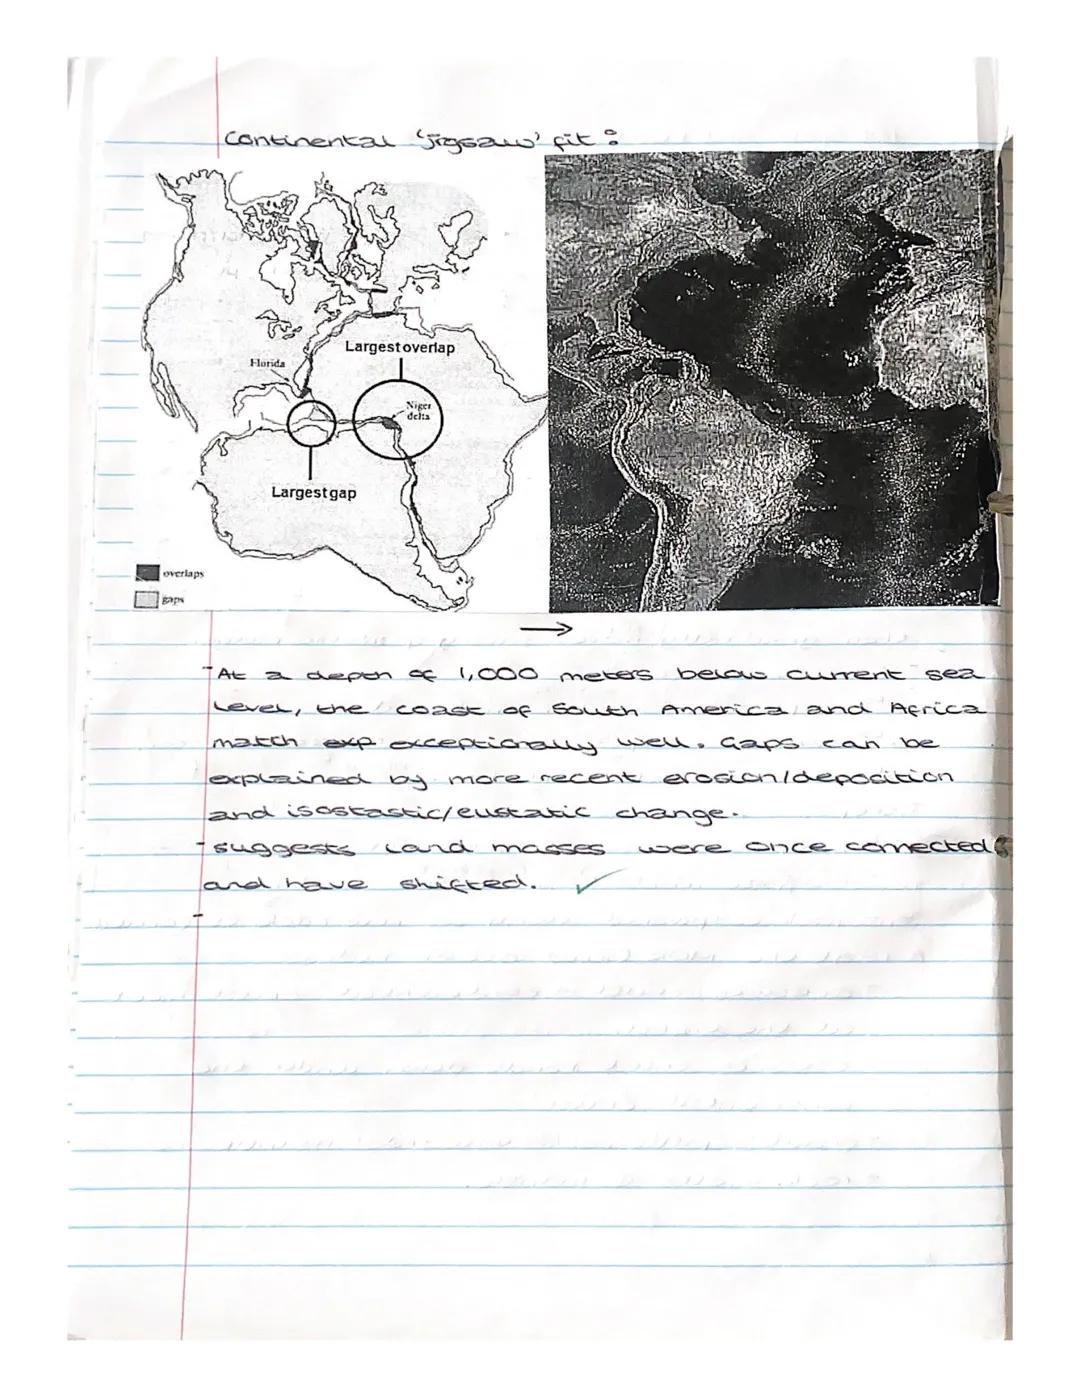 Continental 'Jigsaw' fit:
Largest overlap
Florida
Niger
delta
Largest gap
overlaps
gaps
→
- At a depth of 1,000 meters below current sea
level, the coast of South America and Africa
match exp exceptionally well. Gaps can be
explained by more recent erosion/deposition
and isostastic/eustatic change.
- suggests land masses were once connected
and have shifted. ✓
-